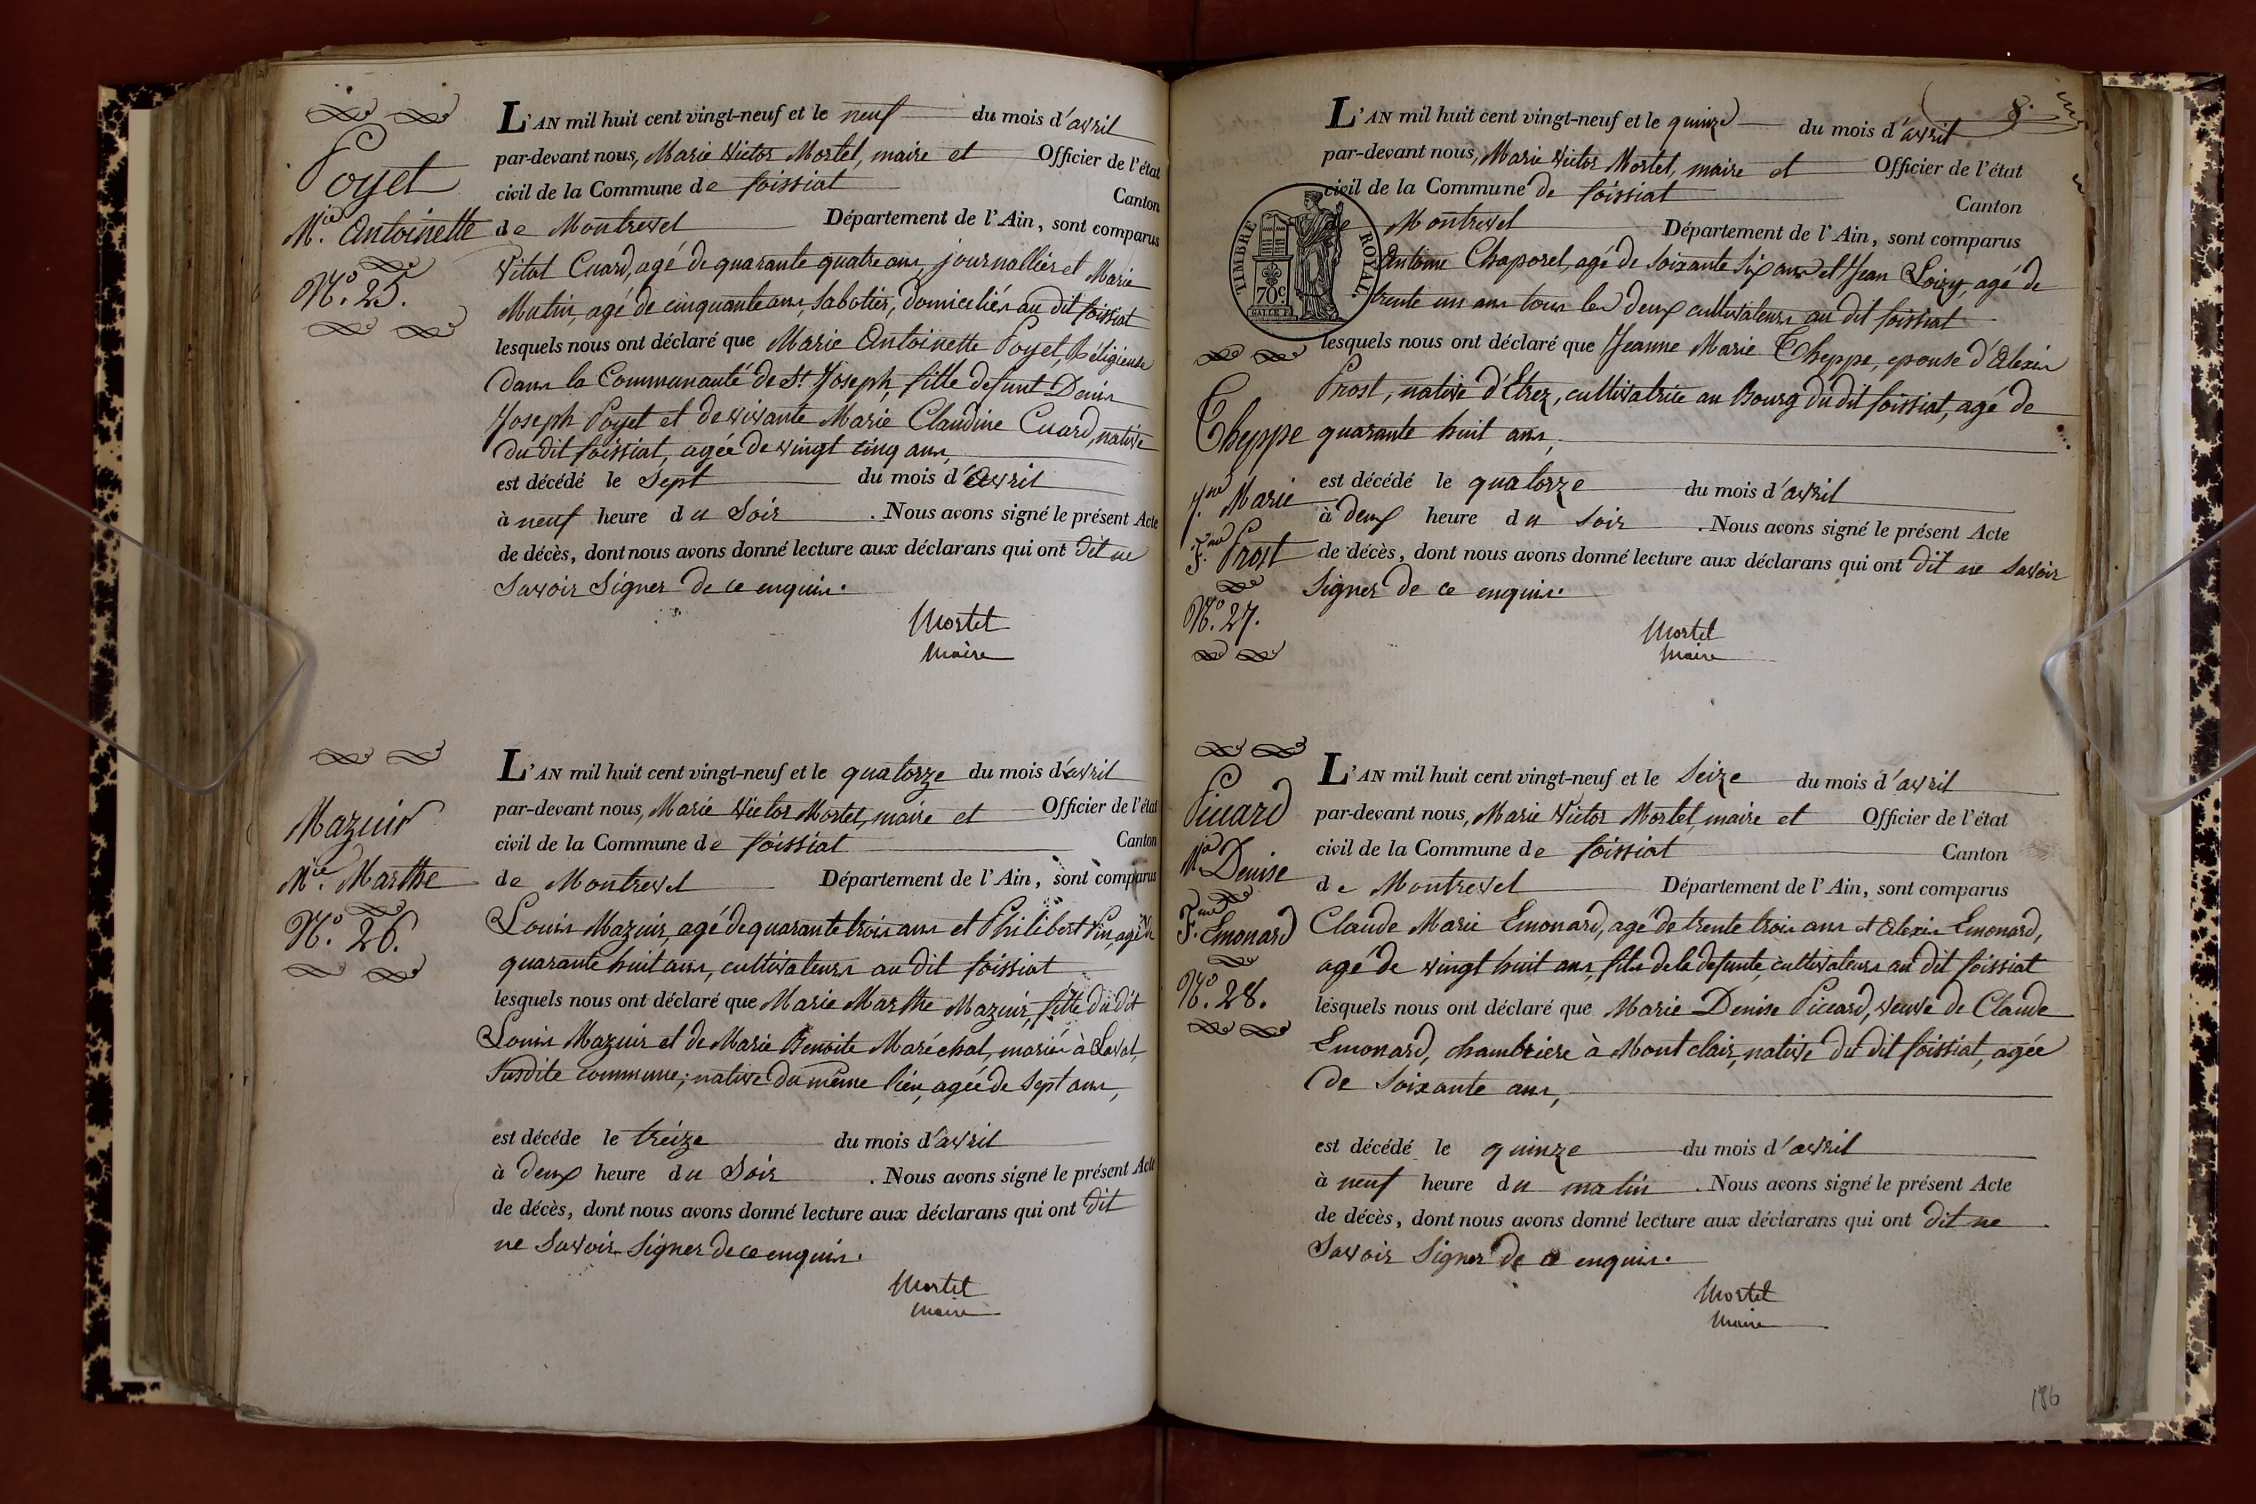 Poyet
Mie. Antoinette
No. 25.
L'AN mil huit cent vingt-neuf et le neuf du mois d'avril
par-devant nous, Marie Victor Mortel, maire et Officier de l'état
civil de la Commune de foissiat Canton
de Montrevel Département de l'Ain, sont comparus
Vital Cuard, agé de quarante quatre ans, journallier et Marie
Mutin, agé de cinquante ans, Sabotier, domiceliés au dit foissiat
lesquels nous ont déclaré que Marie Antoinette Poyet, Réligieuse
dans la Communauté de St. Joseph, fille defunt Denis
Joseph Poyet et de vivante Marie Claudine Cuard, native
du dit foissiat, agée de vingt cinq ans,
est décédé le Sept du mois d'avril
à neuf heure du Soir . Nous avons signé le présent Acte
de décès, dont nous avons donné lecture aux déclarans qui ont dit ne
Savoir Signer de ce enquis.
Mortel
Maire
Mazuir
Mie. Marthe
No. 26.
L'AN mil huit cent vingt-neuf et le quatorze du mois d'avril
par-devant nous, Marie Victor Mortel, maire et Officier de l'état
civil de la Commune de foissiat Canton
de Montrevel Département de l'Ain, sont comparus
Louis Mazuir, agé de quarante trois ans et Philibert Pin, agé de
quarante huit ans, cultivateurs au dit foissiat
lesquels nous ont déclaré que Marie Marthe Mazuir, fille du dit
Louis Mazuir et de Marie Benoite Maréchal, mariés à Laval,
Susdite commune; native du même lieu, agée de Sept ans,
est décéde le treize du mois d'avril
à deux heure du Soir . Nous avons signé le présent Acte
de décès, dont nous avons donné lecture aux déclarans qui ont dit
ne Savoir Signer de ce enquis.
Mortel
Maire
8.
TIMBRE ROYAL.
70c
L'AN mil huit cent vingt-neuf et le quinze du mois d'avril
par-devant nous, Marie Victor Mortel, maire et Officier de l'état
civil de la Commune de foissiat Canton
de Montrevel Département de l'Ain, sont comparus
Antoine Chaporel, agé de Soixante Six ans et Jean Loizy, agé de
trente un ans tous les deux cultivateurs au dit foissiat
lesquels nous ont déclaré que Jeanne Marie Cheppe, epouse d'Alexis
Prost, native d'Etrez, cultivatrice au Bourg du dit foissiat, agé de
quarante huit ans,
Cheppe
Jne. Marie
Fme. Prost
No. 27.
est décédé le quatorze du mois d'avril
à deux heure du Soir . Nous avons signé le présent Acte
de décès, dont nous avons donné lecture aux déclarans qui ont dit ne Savoir
Signer de ce enquis.
Mortel
Maire
Picard
Mie Denise
Fme. Emonard
No. 28.
L'AN mil huit cent vingt-neuf et le Seize du mois d'avril
par-devant nous, Marie Victor Mortel, maire et Officier de l'état
civil de la Commune de foissiat Canton
de Montrevel Département de l'Ain, sont comparus
Claude Marie Emonard, agé de trente trois ans et Alexis Emonard,
agé de vingt huit ans, fils de la defunte, cultivateurs au dit foissiat
lesquels nous ont déclaré que Marie Denise Piccard, veuve de Claude
Emonard, chambriere à Mont clair, native du dit foissiat, agée
de Soixante ans,
est décédé le quinze du mois d'avril
à neuf heure du matin . Nous avons signé le présent Acte
de décès, dont nous avons donné lecture aux déclarans qui ont dit ne
Savoir Signer de ce enquis.
Mortel
Maire
186